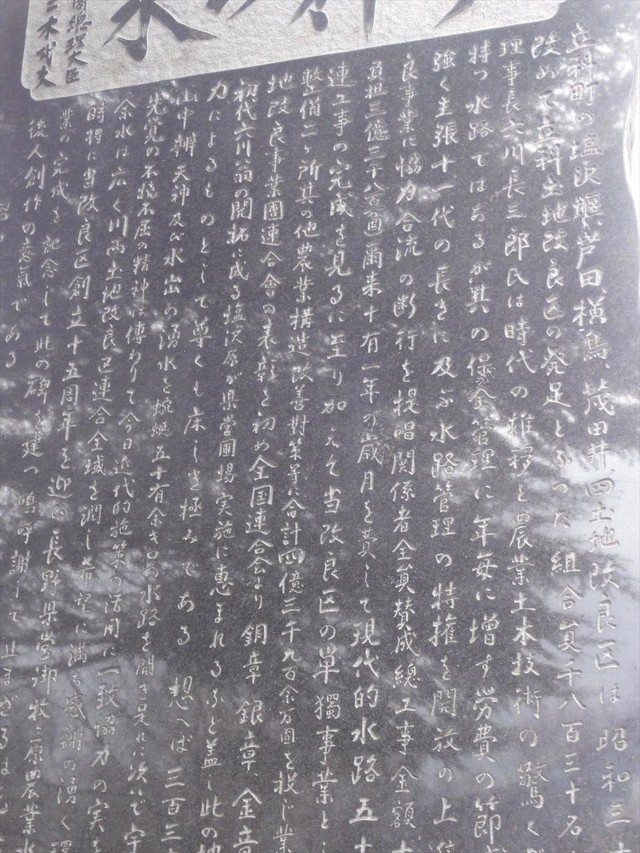 立科町の塩沢堰、芦田、横鳥、茂田井、四土地改良区は昭和三十
改めて立科土地改良区の発足となつた組合員千八百三十名
理事長六川長三郎氏は時代の推移と農業土木技術の驚く
特つ水路ではあるが其の保全管理に年毎に増す労費の節
強く主張十一代の長きに及ぶ水路管理の特権を開放の上
良事業に協力合流の断行を提唱関係者全員賛成総工事金額十
負担三億二千八百万円爾来十有一年の歳月を費して現代的水路五十
連工事の完成を見るに至り加えて当改良区の単獨事業と
整備二ヶ所其の他農業構造改善対策等に合計四億三千九百余万円を投じ業
地改良事業團連合會の表彰を初め全国連合会より銅章、銀章、金章
初代六川翁の開拓に成る塩沢原が県営圃場実施に恵まれるなど蓋し此の地
力によるものとして尊くも床しき極みである 想へば三百三
山中辨天神及び水出の湧水を蜿蜒五十有余キロの水路を開き足れに次いで宇
先覚の不撓不屈の精神は傳わりて今日近代的施策の活用に一致協力の実を
余水は広く川西土地改良区連合全域を潤し希望に満ち感謝の湧く
時将に当改良区創立十五周年を迎へ長野県営御牧ヶ原農業水
業の完成を記念して此の碑を建つ 嗚呼謝して止まざるは
後人創作の意氣である
閣總理大臣
三木武夫
水